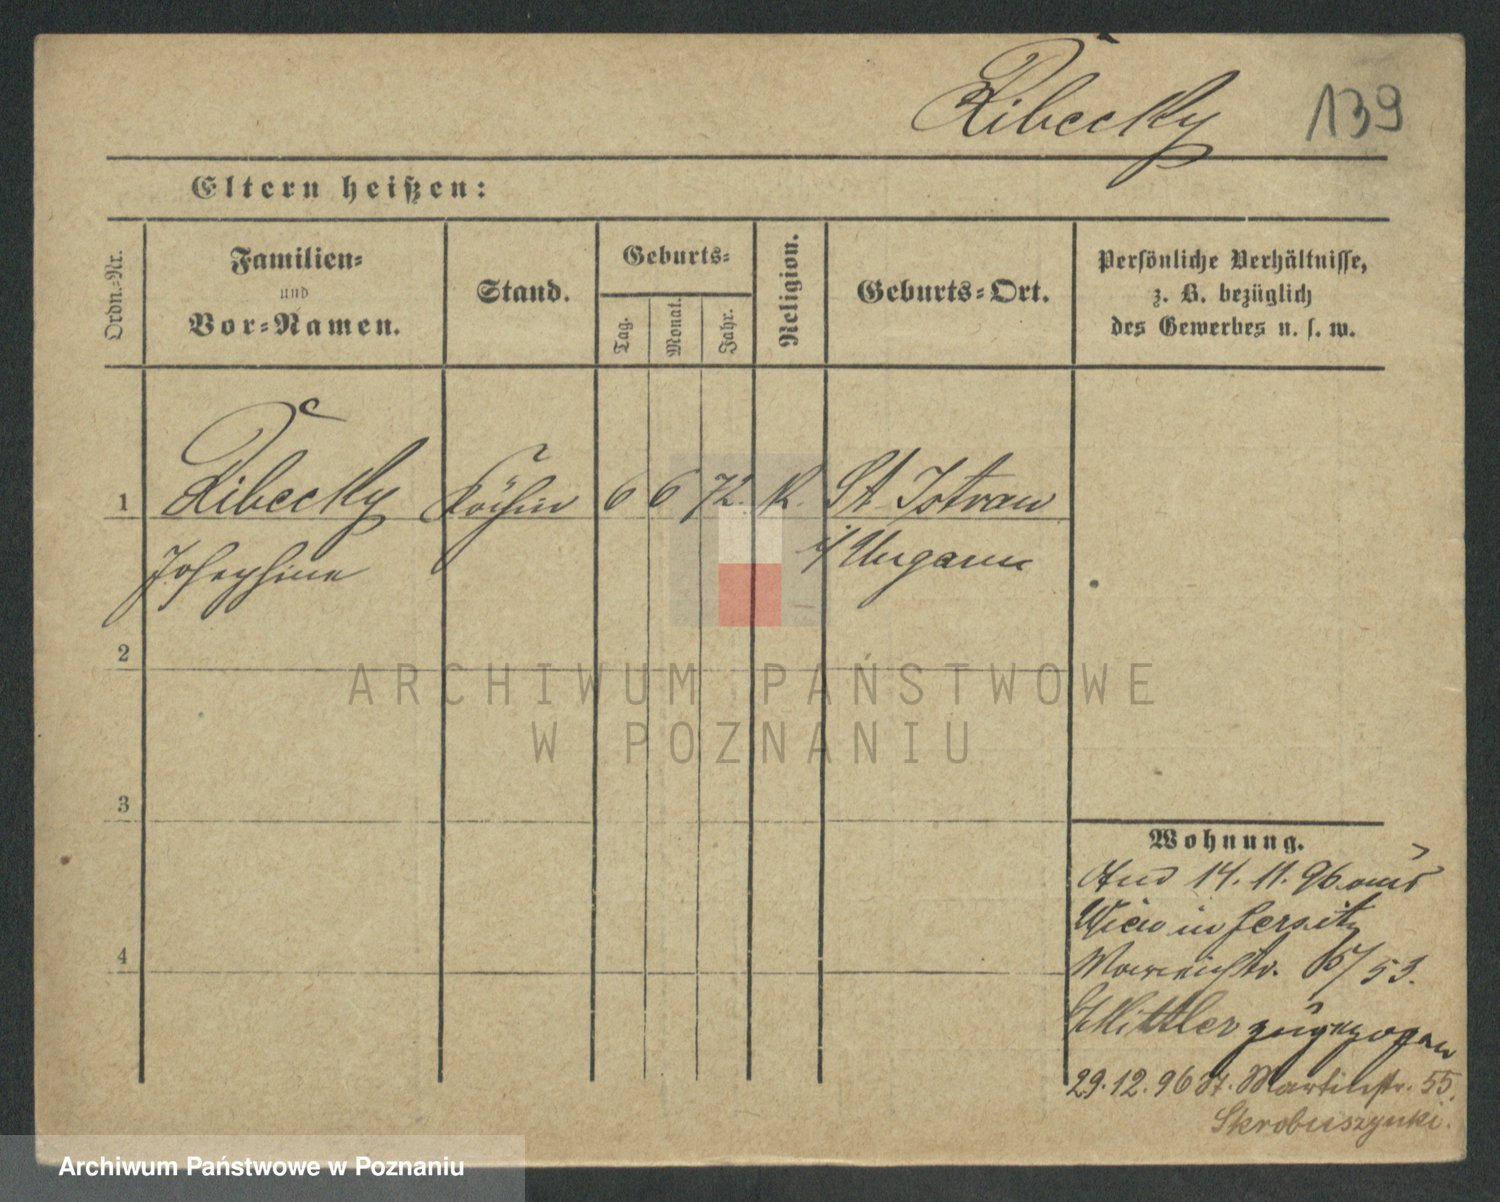 Ribecky 139
Eltern heißen:
Ordn.-Nr. Familien- und Vor-Namen. Stand. Geburts- Tag. Monat. Jahr. Religion. Geburts-Ort. Persönliche Verhältnisse, z. B. bezüglich des Gewerbes u. s. w.
1 Ribecky Köchin 6 6 72. K. St. Istvan
Josephine i/Ungarn
2
ARCHIWUM PAŃSTWOWE
W POZNANIU
3
Wohnung.
14. 11. 96 aus
Wien in Jersitz
53.
Mittler zugezogen
4
29.12.96 St. Martinstr. 55.
Skrobuszynski.
Archiwum Państwowe w Poznaniu